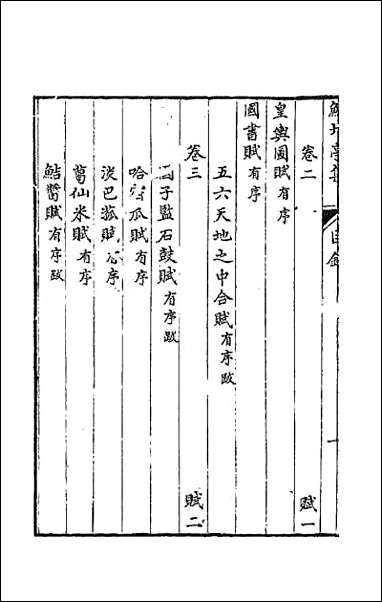 鮚埼亭集 目錄 一
卷二 賦一
皇輿圖賦有序
國書賦有序
五六天地之中合賦有序跋
卷三 賦二
國子監石鼓賦有序跋
哈密瓜賦有序
淡巴菰賦有序
葛仙米賦有序
鮚醬賦有序跋